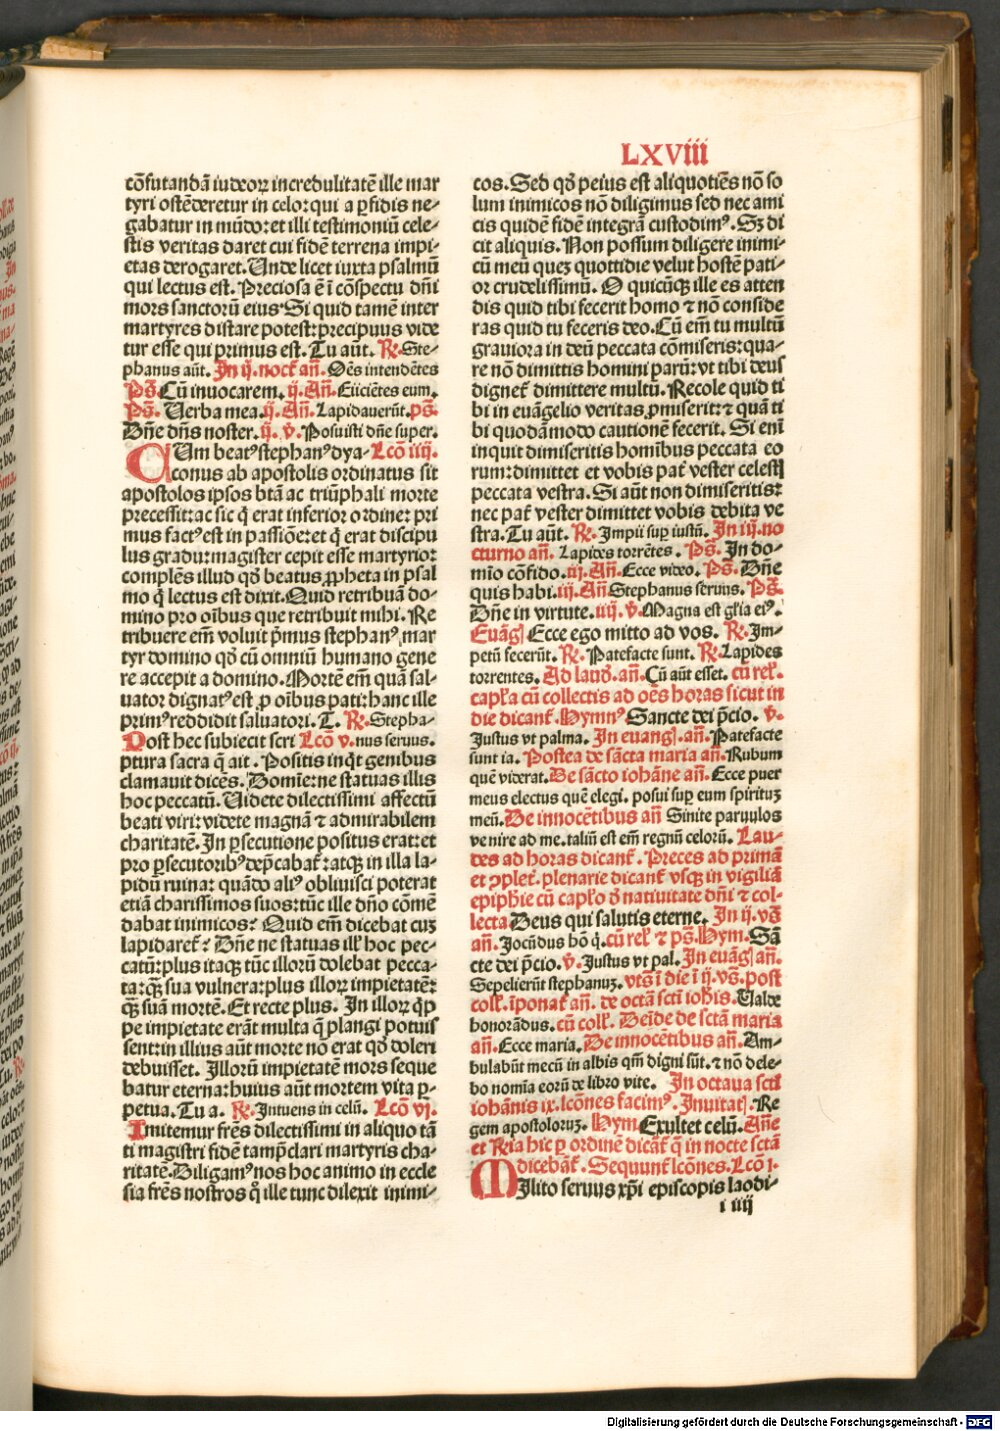 LXVIII
cōfutandā iudeoꝝ incredulitatē ille mar
tyri ostēderetur in celo: qui a ꝑfidis ne-
gabatur in mūdo: et illi testimoniū cele-
stis veritas daret cui fidē terrena impi-
etas derogaret. Unde licet iuxta psalmū
qui lectus est. Preciosa ē ī cōspectu dn̄i
mors sanctorū eius Si quid tamē inter
martyres distare potest: precipuus vide
tur esse qui primus est. Tu aūt. ℞. Ste-
phanus aūt. In ij. noct̄ an̄. Oēs intendētes
Ps̄. Cū inuocarem. ij. An̄. Eiiciētes eum.
Ps̄. Verba mea. ij. An̄. Lapidauerūt. ps̄.
Dn̄e dn̄s noster. ij. v̄. Posuisti dn̄e super.
CUm beatꝰ stephanꝰ dya- Lcō iiij.
conus ab apostolis ordinatus sit
apostolos ipsos btā ac triūphali morte
precessit: ac sic q̄ erat inferior ordine: pri
mus factꝰ est in passiōe: et q̄ erat discipu
lus gradu: magister cepit esse martyrio:
complēs illud qd̄ beatus ꝓpheta in psal
mo q̄ lectus est dixit. Quid retribuā do-
mino pro oībus que retribuit mihi. Re
tribuere em̄ voluit pͥmus stephanꝰ mar
tyr domino qd̄ cū omniū humano gene
re accepit a domino. Mortē em̄ quā sal-
uator dignatꝰ est ꝓ oībus pati: hanc ille
primꝰ reddidit saluatori. T. ℞. Stepha-
Post hec subiecit scri Lcō v. nus seruus.
ptura sacra q̄ ait. Positis inqͥt genibus
clamauit dicēs. Domīe: ne statuas illis
hoc peccatū. Uidete dilectissimi affectū
beati viri: videte magnā ⁊ admirabilem
charitatē. In ꝑsecutione positus erat: et
pro ꝑsecutoribꝰ dep̄cabat᷑: atqꝫ in illa la-
pidū ruina: quādo aliꝰ obliuisci poterat
etiā charissimos suos: tūc ille dn̄o cōmē
dabat inimicos? Quid em̄ dicebat cuꝫ
lapidaret᷑? Dn̄e ne statuas ill᷑ hoc pec-
catū: plus itaqꝫ tūc illorū dolebat pecca-
ta: qꝫ̄ sua vulnera: plus illoꝝ impietatē:
qꝫ̄ suā mortē. Et recte plus. In illoꝝ q̄ꝑ
pe impietate erāt multa q̄ plangi potuis
sent: in illius aūt morte nō erat qd̄ doleri
debuisset. Illorū impietatē mors seque
batur eterna: huius aūt mortem vita ꝑ-
petua. Tu a. ℞. Intuens in celū. Lcō vj.
Imitemur fr̄es dilectissimi in aliquo tā
ti magistri fidē tamp̄clari martyris cha-
ritatē. Diligamꝰ nos hoc animo in eccle
sia fr̄es nostros q̊ ille tunc dilexit inimi-
cos. Sed qd̄ peius est aliquotiēs nō so
lum inimicos nō diligimus sed nec ami
cis quidē fidē integrā custodimꝰ. Sꝫ di
cit aliquis. Non possum diligere inimi-
cū meū queꝫ quottidie velut hostē pati-
or crudelissimū. O quicūqꝫ ille es atten
dis quid tibi fecerit homo ⁊ nō conside
ras quid tu feceris deo. Cū em̄ tu multū
grauiora in deū peccata cōmiseris: qua-
re nō dimittis homini parū: vt tibi deus
dignet᷑ dimittere multū. Recole quid ti
bi in euāgelio veritas ꝓmiserit: ⁊ quā ti
bi quodāmodo cautionē fecerit. Si eni
inquit dimiseritis homībus peccata eo
rum: dimittet et vobis pat᷑ vester celest̄
peccata vestra. Si aūt non dimiseritis:
nec pat᷑ vester dimittet vobis debita ve
stra. Tu aūt. ℞. Impii suꝑ iustū. In iij. no
cturno an̄. Lapides torrētes. Ps̄. In do-
mīo cōfido. iij. An̄. Ecce video. Ps̄. Dn̄e
quis habi. iij. An̄ Stephanus seruus. Ps̄.
Dn̄e in virtute. iij. v̄. Magna est gl̄ia eiꝰ.
Euāg᷑ Ecce ego mitto ad vos. ℞. Im-
petū fecerūt. ℞. Patefacte sunt. ℞. Lapides
torrentes. Ad laud̄. an̄. Cū aūt esset. cū rel᷑.
capl̄a cū collectis ad oēs horas sicut in
die dicant᷑. Hymnꝰ Sancte dei p̄cio. v̄.
Justus vt palma. In euang᷑. an̄. Patefacte
sunt ia. Postea de sācta maria an̄. Rubum
quē viderat. De sācto iohāne an̄. Ecce puer
meus electus quē elegi. posui suꝑ eum spirituꝫ
meū. De innocētibus an̄ Sinite paruulos
venire ad me. taliū est em̄ regnū celorū. Lau-
des ad horas dicant᷑. Preces ad primā
et ꝯplet̄. plenarie dicant᷑ vsqꝫ in vigiliā
epiphīe cū capl̄o ꝺ natiuitate dn̄i ⁊ col-
lecta Deus qui salutis eterne. In ij. vs̄
an̄. Jocūdus hō q̄. cū rel᷑ ⁊ ps̄. Hym. Sā
cte dei p̄cio. v̄. Justus vt pal. In euāg᷑ an̄.
Sepelierūt stephanuꝫ. vts̄ ī die ī ij. vs̄. post
coll᷑. īponat᷑ an̄. de octā sct̄i ioh̄is. Ualde
honorādus. cū coll᷑. Deīde de sctā maria
an̄. Ecce maria. De innocētibus an̄. Am-
bulabūt mecū in albis qm̄ digni sūt. ⁊ nō dele-
bo nomīa eorū de libro vite. In octaua sct̄i
iohānis ix. lcōnes facimꝰ. Inuitat᷑. Re
gem apostoloruꝫ. Hym Exultet celū. An̄e
et Rīa hic ꝑ ordinē dicāt᷑ q̄ in nocte sctā
dicebāt᷑. Sequunt᷑ lcōnes. Lcō i.
MIlito seruus xp̄i episcopis laodi-
i iiij
Digitalisierung gefördert durch die Deutsche Forschungsgemeinschaft - DFG